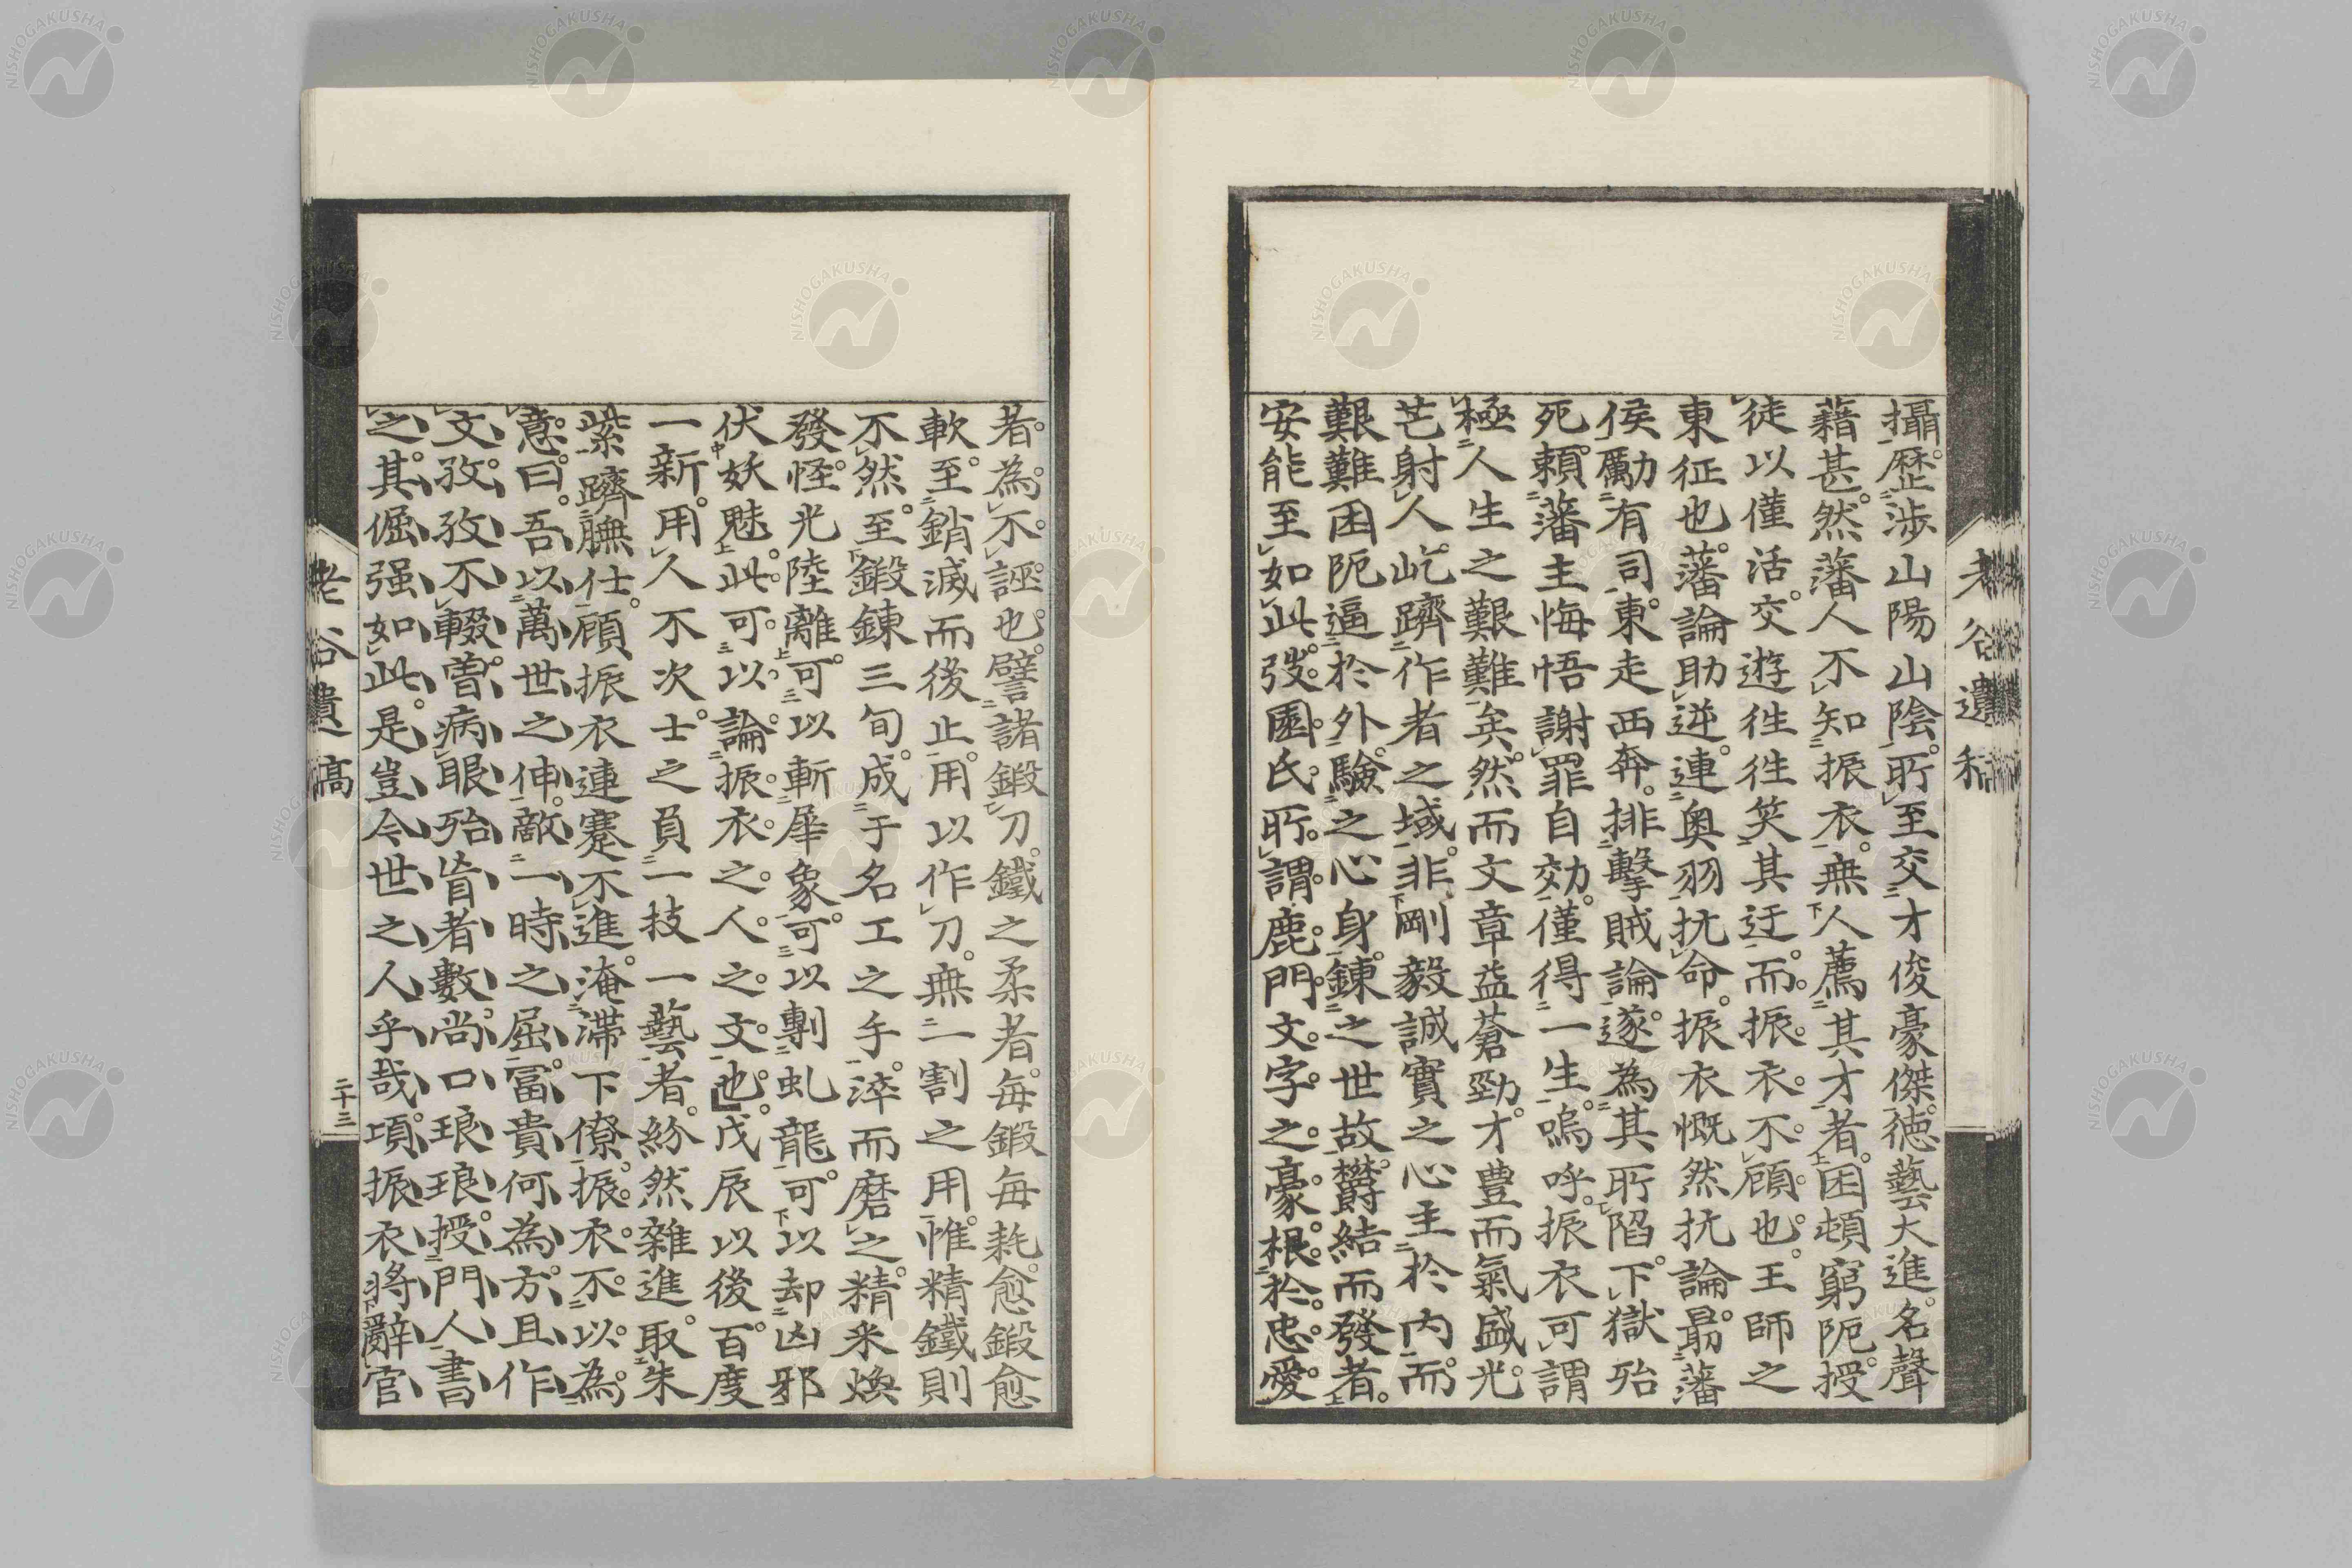 攝歷涉山陽山陰所至交才俊豪傑德藝大進名聲
藉甚然藩人不知振衣無人薦其才者困頓窮阨授
徒以僅活交遊徃徃笑其迂而振衣不顧也王師之
東征也藩論助逆連奧羽抗命振衣慨然抗論最藩
侯勵有司東走西奔排擊賊論遂為其所陷下獄殆
死賴藩主悔悟謝罪自効僅得一生嗚呼振衣可謂
極人生之艱難矣然而文章益蒼勁才豊而氣盛光
芒射人屹躋作者之域非剛毅誠實之心主於內而
艱難困阨逼於外驗之心身鍊之世故欝結而發者
安能至如此弢園氏所謂鹿門文字之豪根於忠愛
者為不誣也譬諸鍛刀鐵之柔者每鍛每耗愈鍛愈
軟至銷滅而後止用以作刀無一割之用惟精鐵則
不然至鍛鍊三旬成于名工之手淬而磨之精釆煥
發怪光陸離可以斬犀象可以剸虬龍可以却凶邪
伏妖魅此可以論振衣之人之文也戊辰以後百度
一新用人不次士之負一技一藝者紛然雜進取朱
紫躋膴仕顧振衣連蹇不進淹滯下僚振衣不以為
意曰吾以萬世之伸敵一時之屈富貴何為方且作
文孜孜不輟曽病眼殆眚者數尚口琅琅授門人書
之其倔强如此是豈今世之人乎哉項振衣將辭官
老谷遺稿
二十三